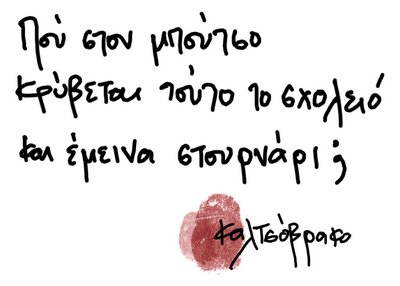 Πού στον μπούτσο
κρύβεται τούτο το σχολειό
και έμεινα στουρνάρι;
καλτσόβρακο